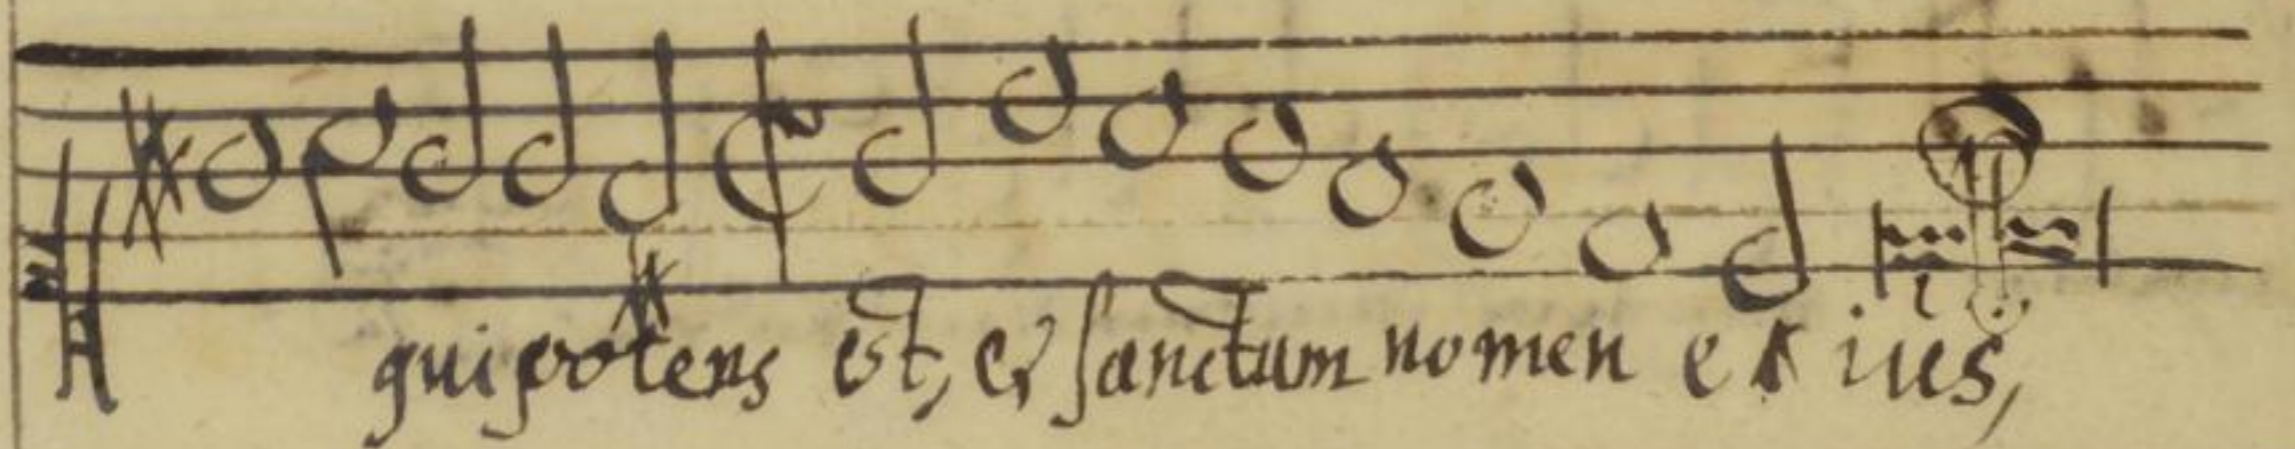 qui potens est, et sanctum nomen eius,